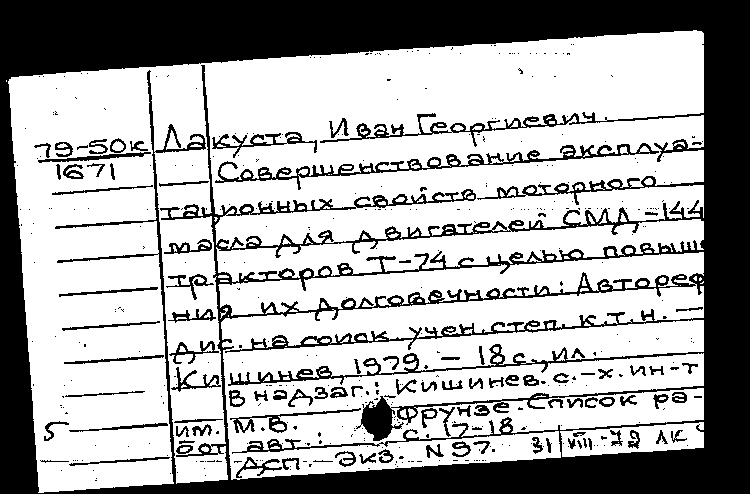 79-50к Лакуста, Иван Георгиевич.
1671 Совершенствование эксплуа-
тационных свойств моторного
масла для двигателей СМД-144
тракторов Т-74 с целью повыше
ния их долговечности: Автореф
дис. на соиск. учен. степ. к.т.н. —
Кишинев, 1979. — 18 с., ил.
В надзаг.: Кишинев. с.-х. ин-т
5 им. М.В. Фрунзе. Список ра-
бот авт.: с. 17-18.
ДСП. Экз. N 97. 31/VIII-79 ЛК